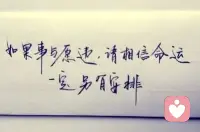 如果事与愿违，请相信命运
一定另有安排